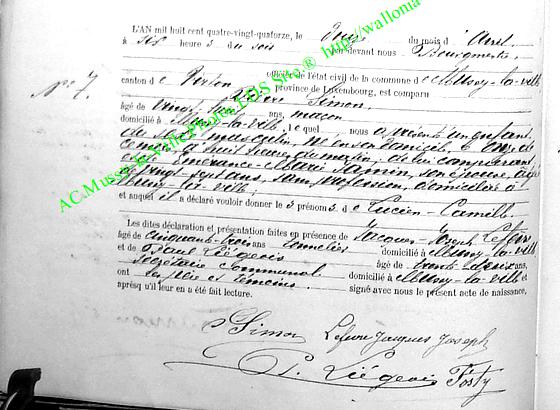 L'AN mil huit cent quatre-vingt-quatorze, le onze du mois d'Avril,
à six heures du soir par devant nous Bourgmestre
officier de l'état civil de la commune de Mussy-la-ville
N° 7. canton de Virton, province de Luxembourg, est comparu
Simon,
âgé de vingt ans, maçon
domicilié à Mussy-la-ville, lequel nous a présenté un enfant
du sexe masculin, né en son domicile, à onze de
ce mois à huit heures du matin, de lui comparant
et de Emérance Marie, son épouse, âgée
de vingt-sept ans, sans profession, domiciliée à
Mussy-la-ville,
et auquel il a déclaré vouloir donner les prénoms de Lucien-Camille.
Les dites déclaration et présentation faites en présence de Jacques Joseph Lefèvre
âgé de cinquante-trois ans domicilié à Mussy-la-ville
et de Paul Liégeois âgé de trente ans,
secrétaire communal domicilié à Mussy-la-ville et
ont les père et témoins signé avec nous le présent acte de naissance,
après qu'il leur en a été fait lecture.
Simon Lefèvre Jacques Joseph
P. Liégeois Fosty
AC.Musson-la-ville Photos LDS Src® http://wallonia